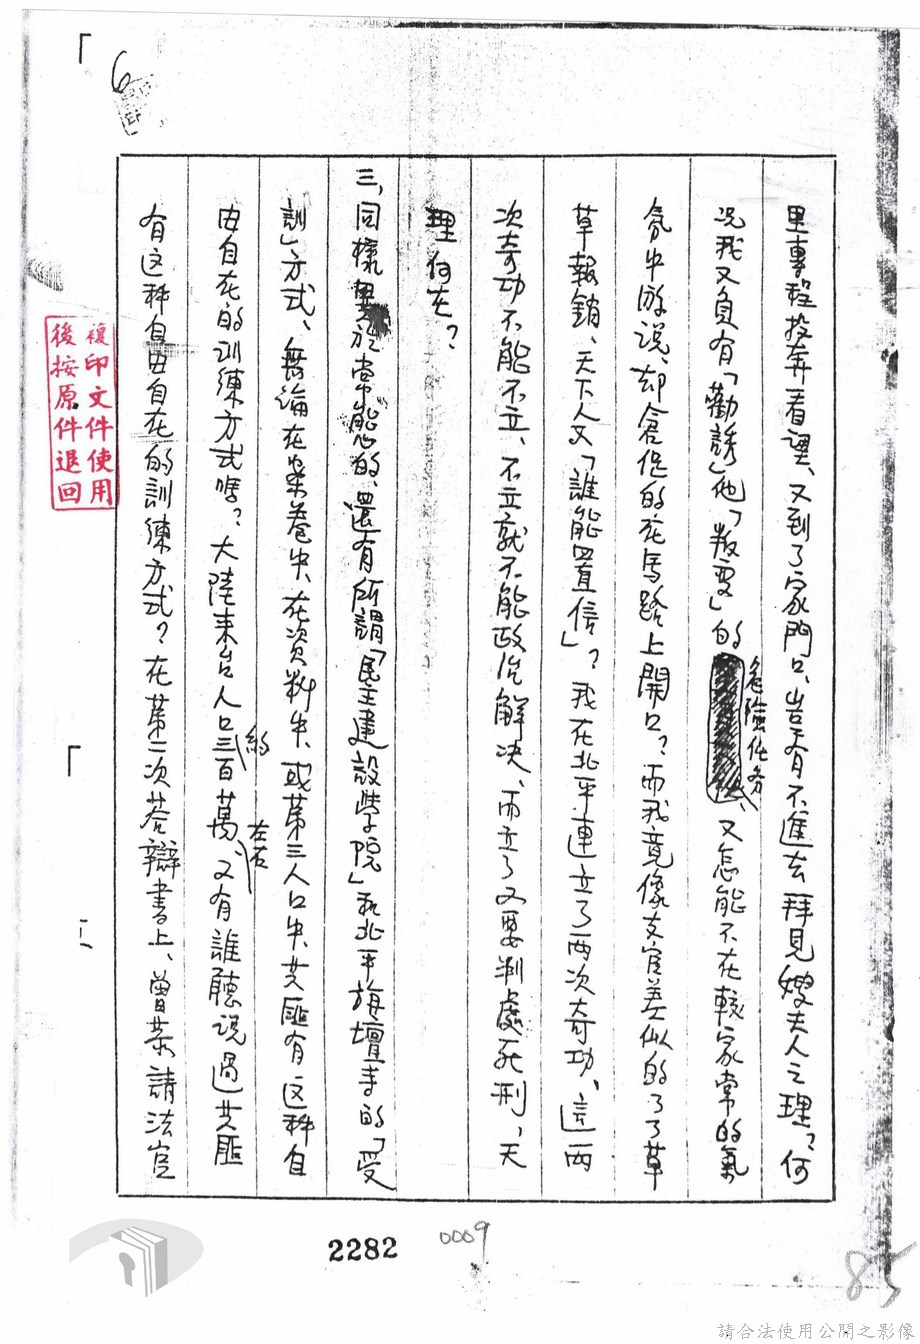 6
里專程投奔看望、又到了家門口、豈有不進去拜見嫂夫人之理？何
況我又負有「勸誘」他「叛變」的危險任务、又怎能不在較家常的氣
氛中游说、却倉促的在馬路上開口？而我竟像支官差似的了了草
草報銷、天下人又「誰能置信」？我在北平連立了兩次奇功、這兩
次奇功不能不立、不立就不能政治解决、而立了又要判處死刑，天
理何在？
三、同樣異於常態的、還有所謂「民主建設學院」和北平旃壇寺的「受
訓」方式、無論在案卷中、在資料中、或第三人口中、共匪有这种自
由自在的训練方式嗎？大陸来台人口約三百萬左右、又有誰聽说過共匪
有这种自由自在的訓練方式？在第二次答辯書上、曾恭請法官
複印文件使用
後按原件退回
2282
0009
85
請合法使用公開之影像